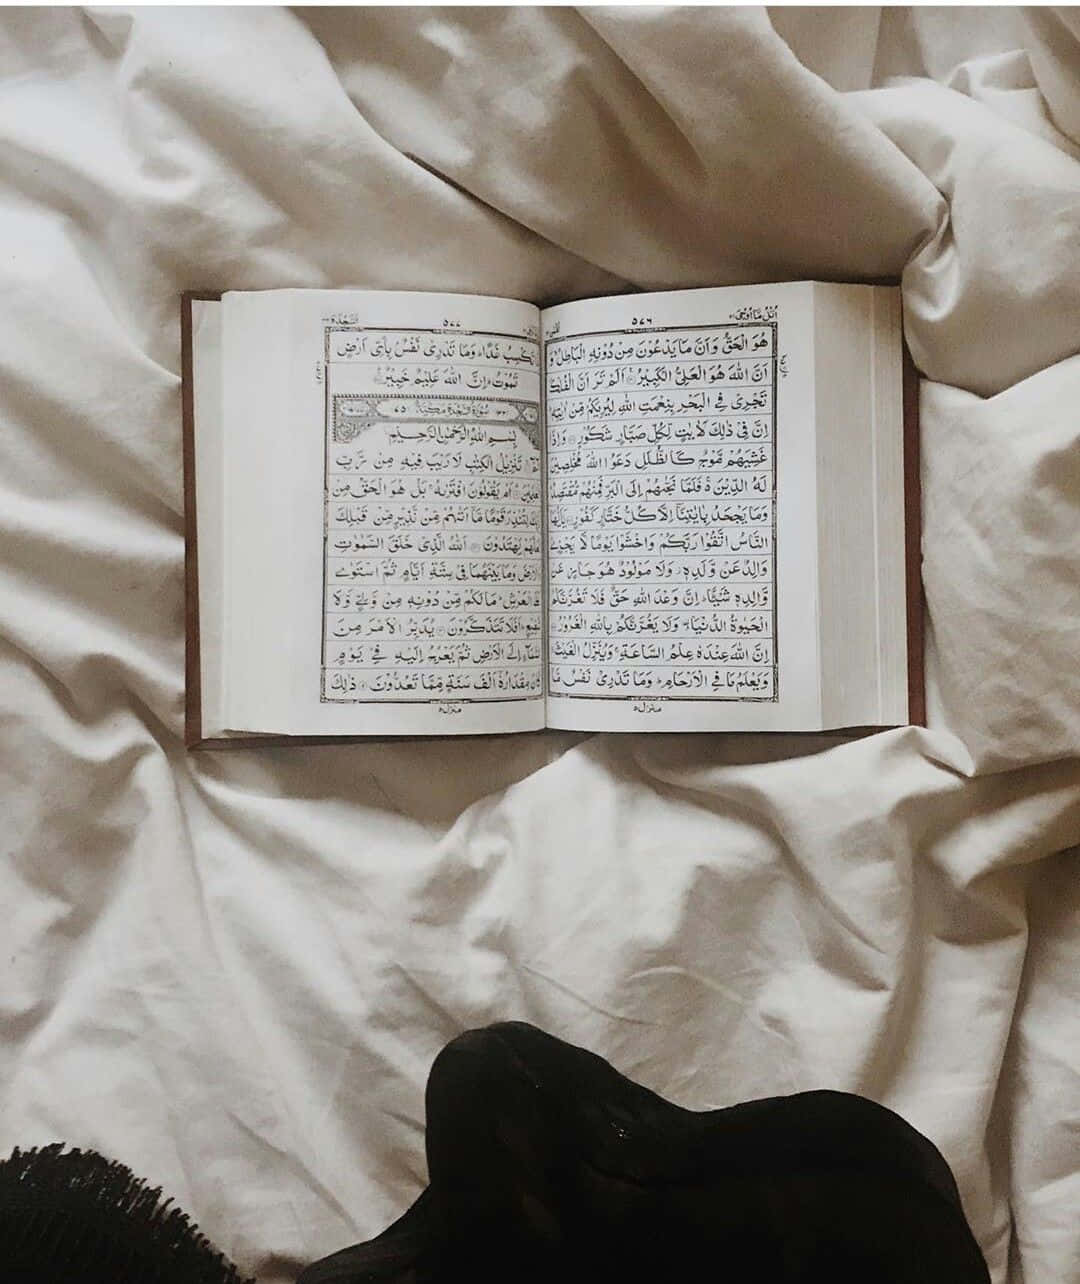 اتل ما اوحی ۲۱
۵۷۶
لقمٰن ۳۱
هُوَ الْحَقُّ وَاَنَّ مَا يَدْعُوْنَ مِنْ دُوْنِهِ الْبَاطِلُ وَ
اَنَّ اللّٰهَ هُوَ الْعَلِىُّ الْكَبِيْرُ اَلَمْ تَرَ اَنَّ الْفُلْكَ
تَجْرِىْ فِى الْبَحْرِ بِنِعْمَتِ اللّٰهِ لِيُرِيَكُمْ مِّنْ اٰيٰتِهٖ
اِنَّ فِىْ ذٰلِكَ لَاٰيٰتٍ لِّكُلِّ صَبَّارٍ شَكُوْرٍ وَاِذَا
غَشِيَهُمْ مَّوْجٌ كَالظُّلَلِ دَعَوُا اللّٰهَ مُخْلِصِيْنَ
لَهُ الدِّيْنَ ەۚ فَلَمَّا نَجّٰىهُمْ اِلَى الْبَرِّ فَمِنْهُمْ مُّقْتَصِدٌ
وَمَا يَجْحَدُ بِاٰيٰتِنَاۤ اِلَّا كُلُّ خَتَّارٍ كَفُوْرٍ يٰۤاَيُّهَا
النَّاسُ اتَّقُوْا رَبَّكُمْ وَاخْشَوْا يَوْمًا لَّا يَجْزِىْ
وَالِدٌ عَنْ وَّلَدِهٖ وَلَا مَوْلُوْدٌ هُوَ جَازٍ عَنْ
وَّالِدِهٖ شَيْـًٔا اِنَّ وَعْدَ اللّٰهِ حَقٌّ فَلَا تَغُرَّنَّكُمُ
الْحَيٰوةُ الدُّنْيَا وَلَا يَغُرَّنَّكُمْ بِاللّٰهِ الْغَرُوْرُ
اِنَّ اللّٰهَ عِنْدَهٗ عِلْمُ السَّاعَةِ وَيُنَزِّلُ الْغَيْثَ
وَيَعْلَمُ مَا فِى الْاَرْحَامِ وَمَا تَدْرِىْ نَفْسٌ مَّا
منزل ۵
۵۷۷
السجدة ۳۲
تَكْسِبُ غَدًا وَمَا تَدْرِىْ نَفْسٌۢ بِاَىِّ اَرْضٍ
تَمُوْتُ اِنَّ اللّٰهَ عَلِيْمٌ خَبِيْرٌ
سُوْرَةُ السَّجْدَةِ مَكِّيَّةٌ ۷۵
بِسْمِ اللّٰهِ الرَّحْمٰنِ الرَّحِيْمِ
تَنْزِيْلُ الْكِتٰبِ لَا رَيْبَ فِيْهِ مِنْ رَّبِّ
الْعٰلَمِيْنَ اَمْ يَقُوْلُوْنَ افْتَرٰىهُ بَلْ هُوَ الْحَقُّ مِنْ
رَّبِّكَ لِتُنْذِرَ قَوْمًا مَّاۤ اَتٰىهُمْ مِّنْ نَّذِيْرٍ مِّنْ قَبْلِكَ
لَعَلَّهُمْ يَهْتَدُوْنَ اَللّٰهُ الَّذِىْ خَلَقَ السَّمٰوٰتِ
وَالْاَرْضَ وَمَا بَيْنَهُمَا فِىْ سِتَّةِ اَيَّامٍ ثُمَّ اسْتَوٰى
عَلَى الْعَرْشِ مَا لَكُمْ مِّنْ دُوْنِهٖ مِنْ وَّلِىٍّ وَّلَا
شَفِيْعٍ اَفَلَا تَتَذَكَّرُوْنَ يُدَبِّرُ الْاَمْرَ مِنَ
السَّمَآءِ اِلَى الْاَرْضِ ثُمَّ يَعْرُجُ اِلَيْهِ فِىْ يَوْمٍ
كَانَ مِقْدَارُهٗۤ اَلْفَ سَنَةٍ مِّمَّا تَعُدُّوْنَ ذٰلِكَ
منزل ۵